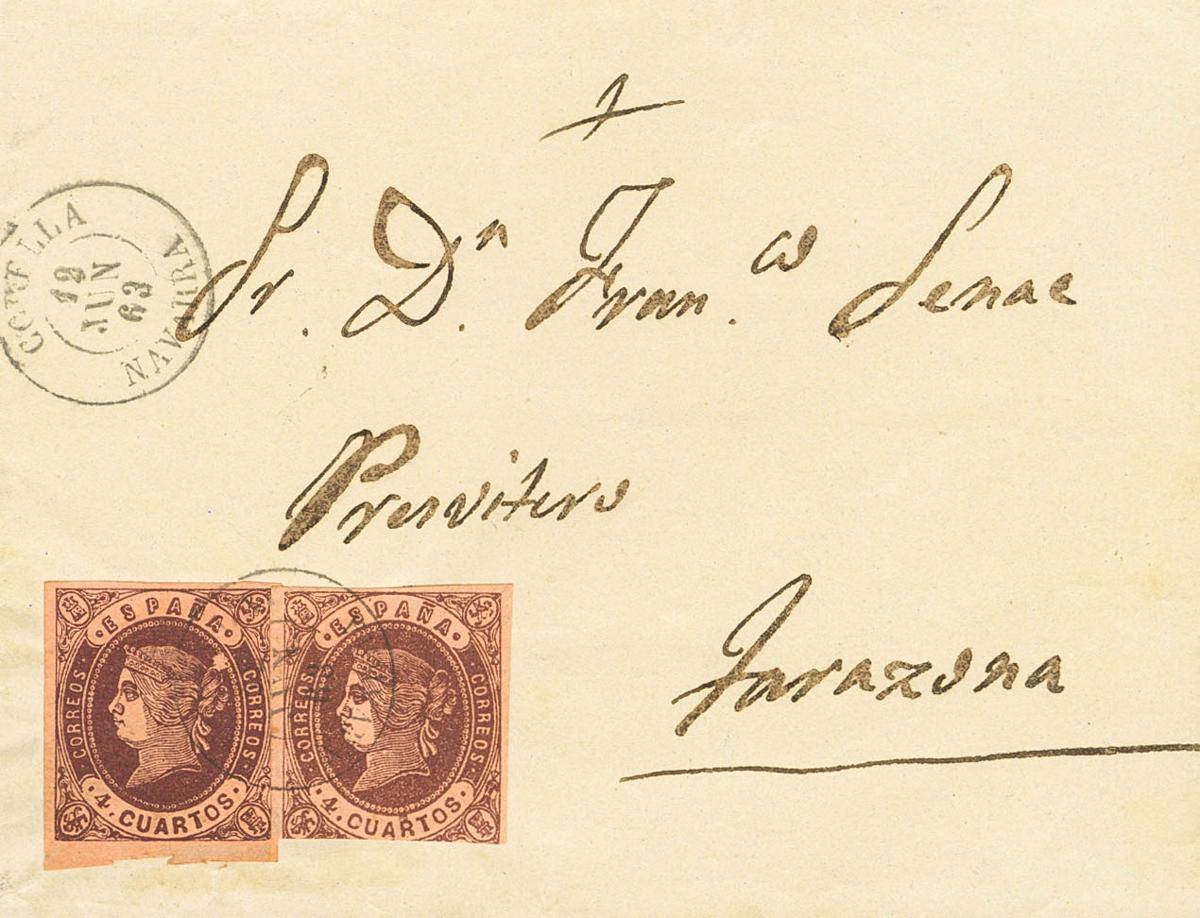 +
Sr. Dn. Franco. Senac
Presvitero
Tarazona
CORELLA
19
JUN
63
NAVARRA
ESPAÑA
CORREOS CORREOS
4. CUARTOS.
ESPAÑA
CORREOS CORREOS
4. CUARTOS.